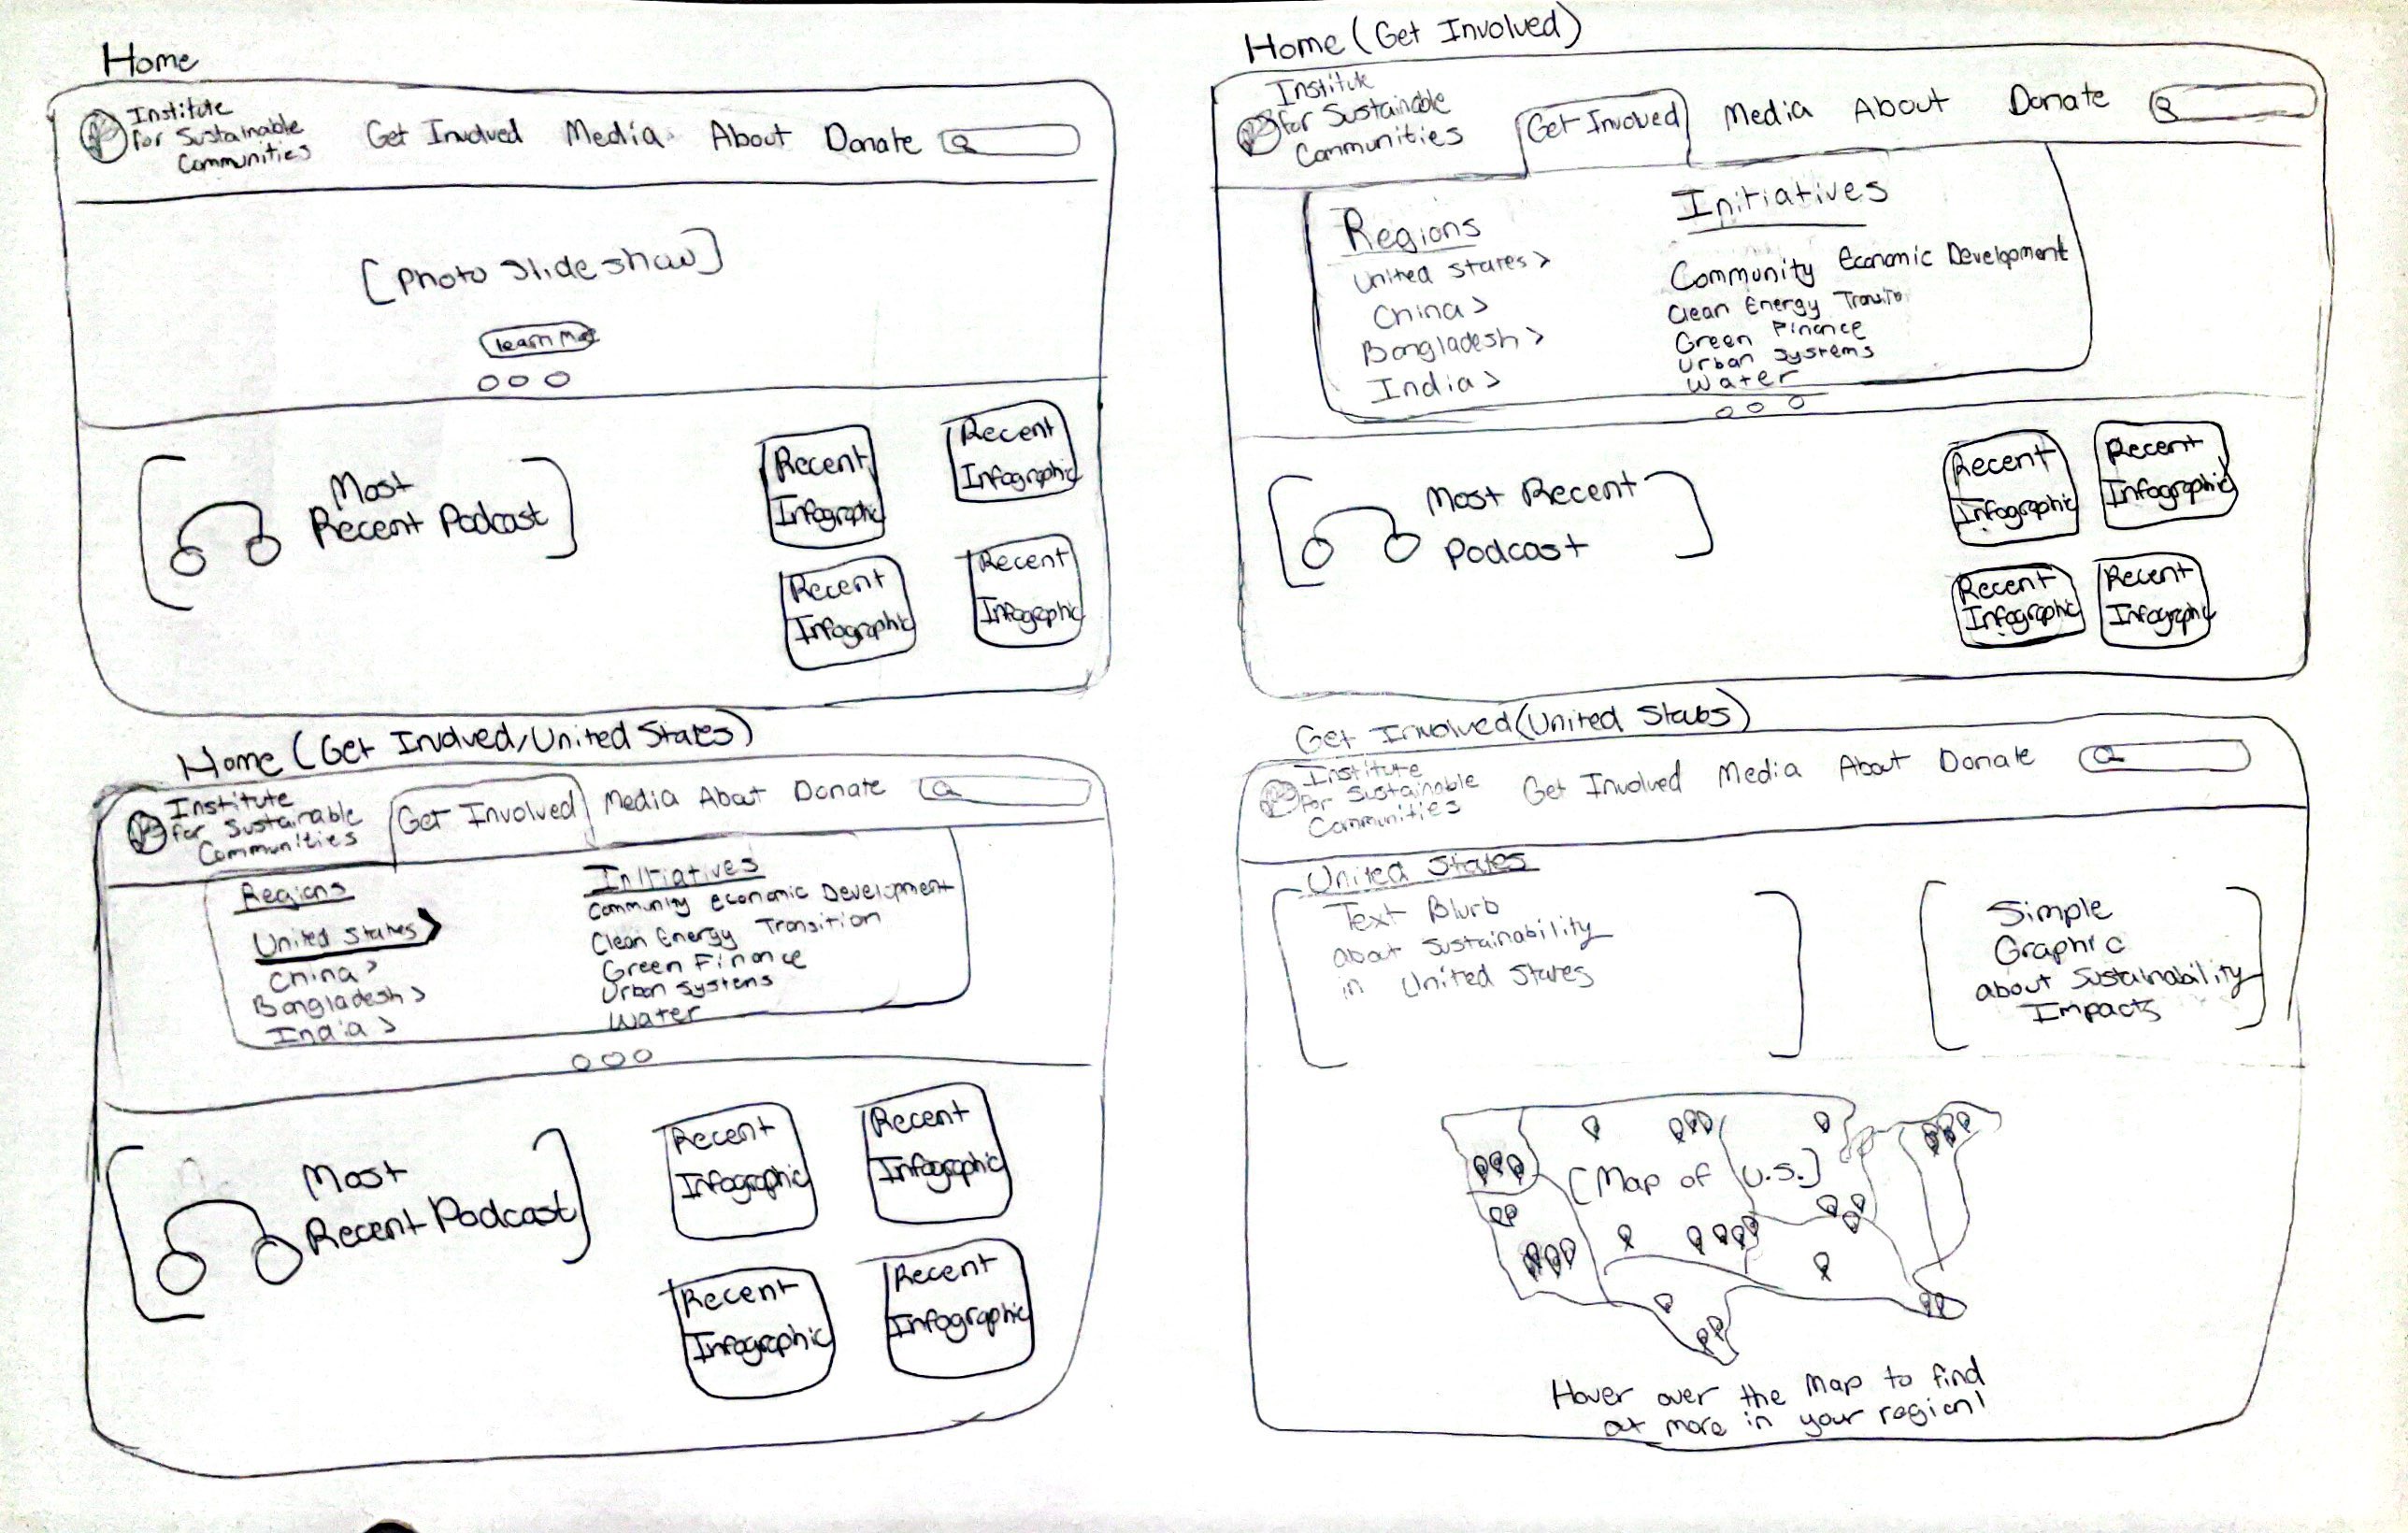 Home
Institute
for Sustainable
Communities
Get Involved Media About Donate
[Photo Slide show]
Learn More
Most
Recent Podcast
Recent
Infographic
Recent
Infographic
Recent
Infographic
Recent
Infographic
Home (Get Involved)
Institute
for Sustainable
Communities
Get Involved Media About Donate
Regions
United States >
China >
Bangladesh >
India >
Initiatives
Community Economic Development
Clean Energy
Green Finance
Urban Systems
Water
Most Recent
Podcast
Recent
Infographic
Recent
Infographic
Recent
Infographic
Recent
Infographic
Home (Get Involved/United States)
Institute
for Sustainable
Communities
Get Involved Media About Donate
Regions
United States >
China >
Bangladesh >
India >
Initiatives
Community Economic Development
Clean Energy Transition
Green Finance
Urban Systems
Water
Most
Recent Podcast
Recent
Infographic
Recent
Infographic
Recent
Infographic
Recent
Infographic
Get Involved (United States)
Institute
for Sustainable
Communities
Get Involved Media About Donate
United States
Text Blurb
about Sustainability
in United States
Simple
Graphic
about Sustainability
Impacts
[Map of U.S.]
Hover over the map to find
out more in your region!